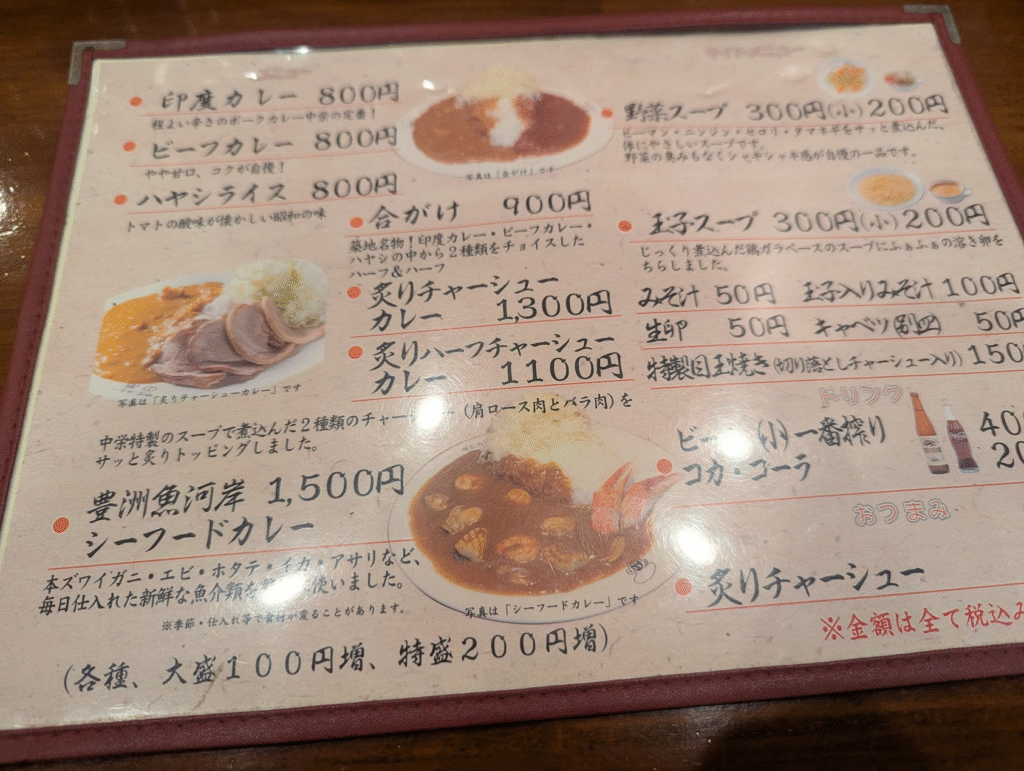 メニュー
印度カレー 800円
程よい辛さのポークカレー中栄の定番！
ビーフカレー 800円
やや甘口、コクが自慢！
ハヤシライス 800円
トマトの酸味が懐かしい昭和の味
写真は「合がけ」です
合がけ 900円
築地名物！印度カレー・ビーフカレー・
ハヤシの中から２種類をチョイスした
ハーフ＆ハーフ
炙りチャーシュー
カレー 1,300円
炙りハーフチャーシュー
カレー 1100円
写真は「炙りチャーシューカレー」です
中栄特製のスープで煮込んだ２種類のチャーシュー（肩ロース肉とバラ肉）を
サッと炙りトッピングしました。
豊洲魚河岸 1,500円
シーフードカレー
本ズワイガニ・エビ・ホタテ・イカ・アサリなど、
毎日仕入れた新鮮な魚介類を 使いました。
※季節・仕入れ等で食材が変ることがあります。
写真は「シーフードカレー」です
（各種、大盛１００円増、特盛２００円増）
サイドメニュー
野菜スープ 300円(小)200円
ピーマン・ニンジン・セロリ・タマネギをサッと煮込んだ、
体にやさしいスープです。
野菜の臭みもなくシャキシャキ感が自慢の一品です。
玉子スープ 300円(小)200円
じっくり煮込んだ鶏ガラベースのスープにふぁふぁの溶き卵を
ちらしました。
みそ汁 50円 玉子入りみそ汁 100円
生卵 50円 キャベツ(別皿) 50円
特製目玉焼き(切り落としチャーシュー入り) 150
ドリンク
ビール(小)一番搾り 40
コカ・コーラ 20
おつまみ
炙りチャーシュー
※金額は全て税込み